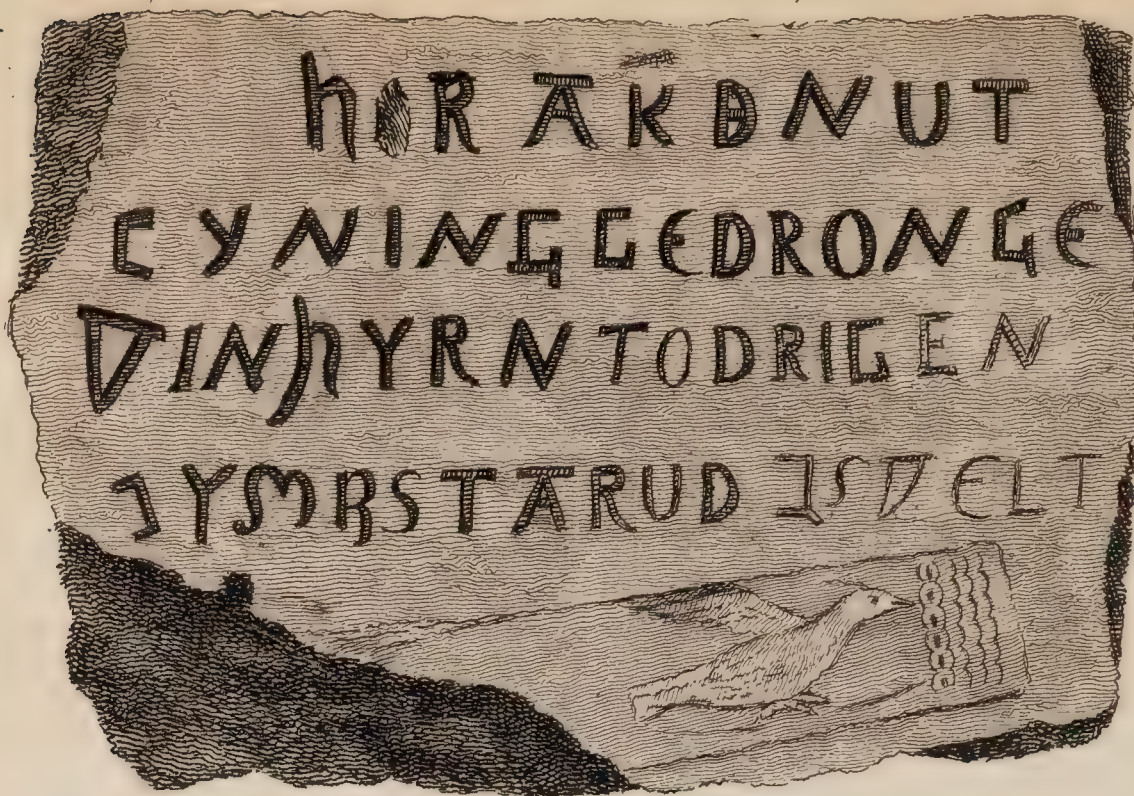 hORĀKÐNUT
CYNINGGEDRONGE
ǷINhYRNTODRIGEN
⁊YMBSTĀRUD ⁊SǷELT